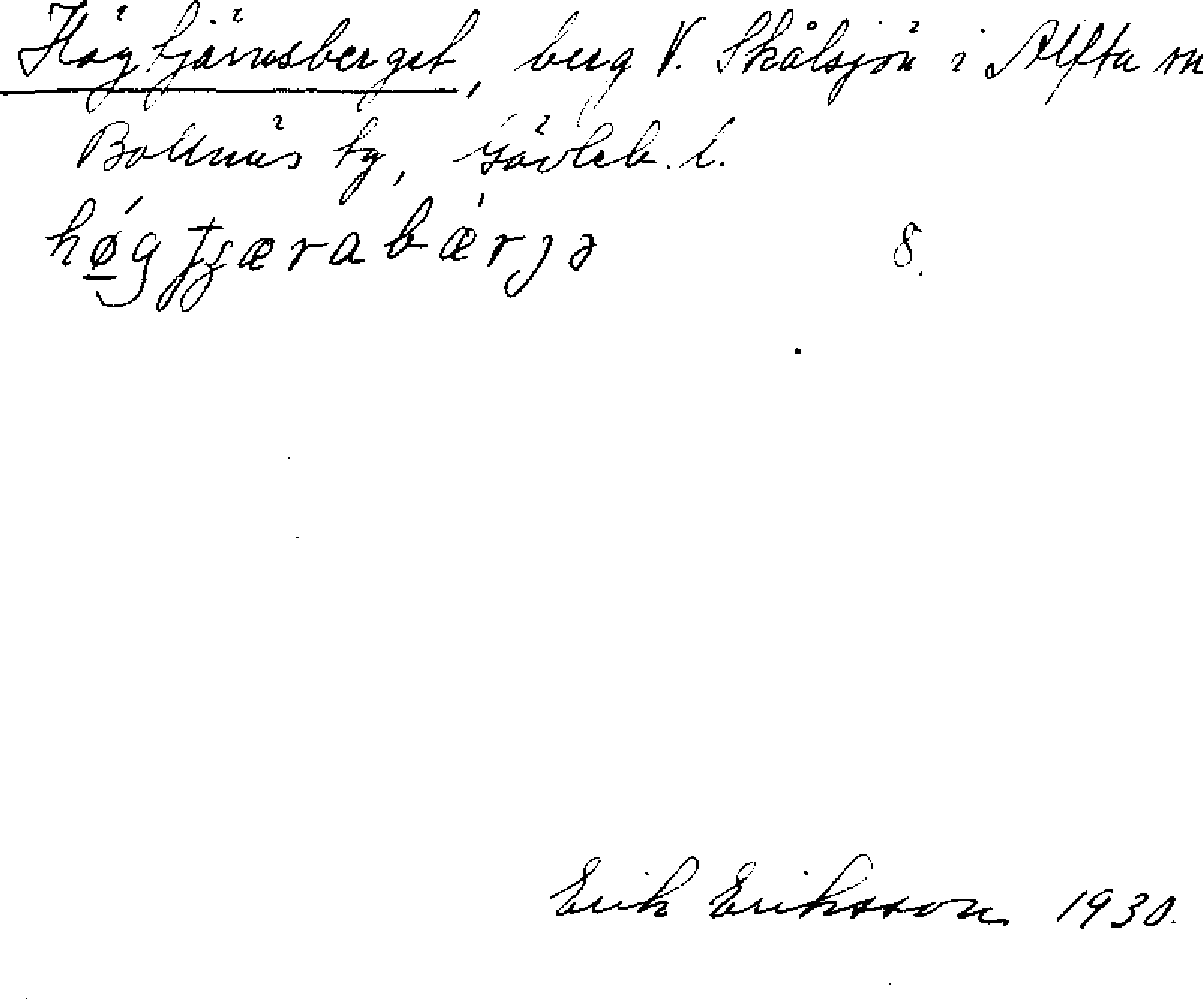 Högtjärnsberget, berg V. Skålsjön i Alfta sn
Bollnäs tg, Gävleb. l.
hǿ̱gtjæraba᷄rjə 8.
Erik Eriksson 1930.